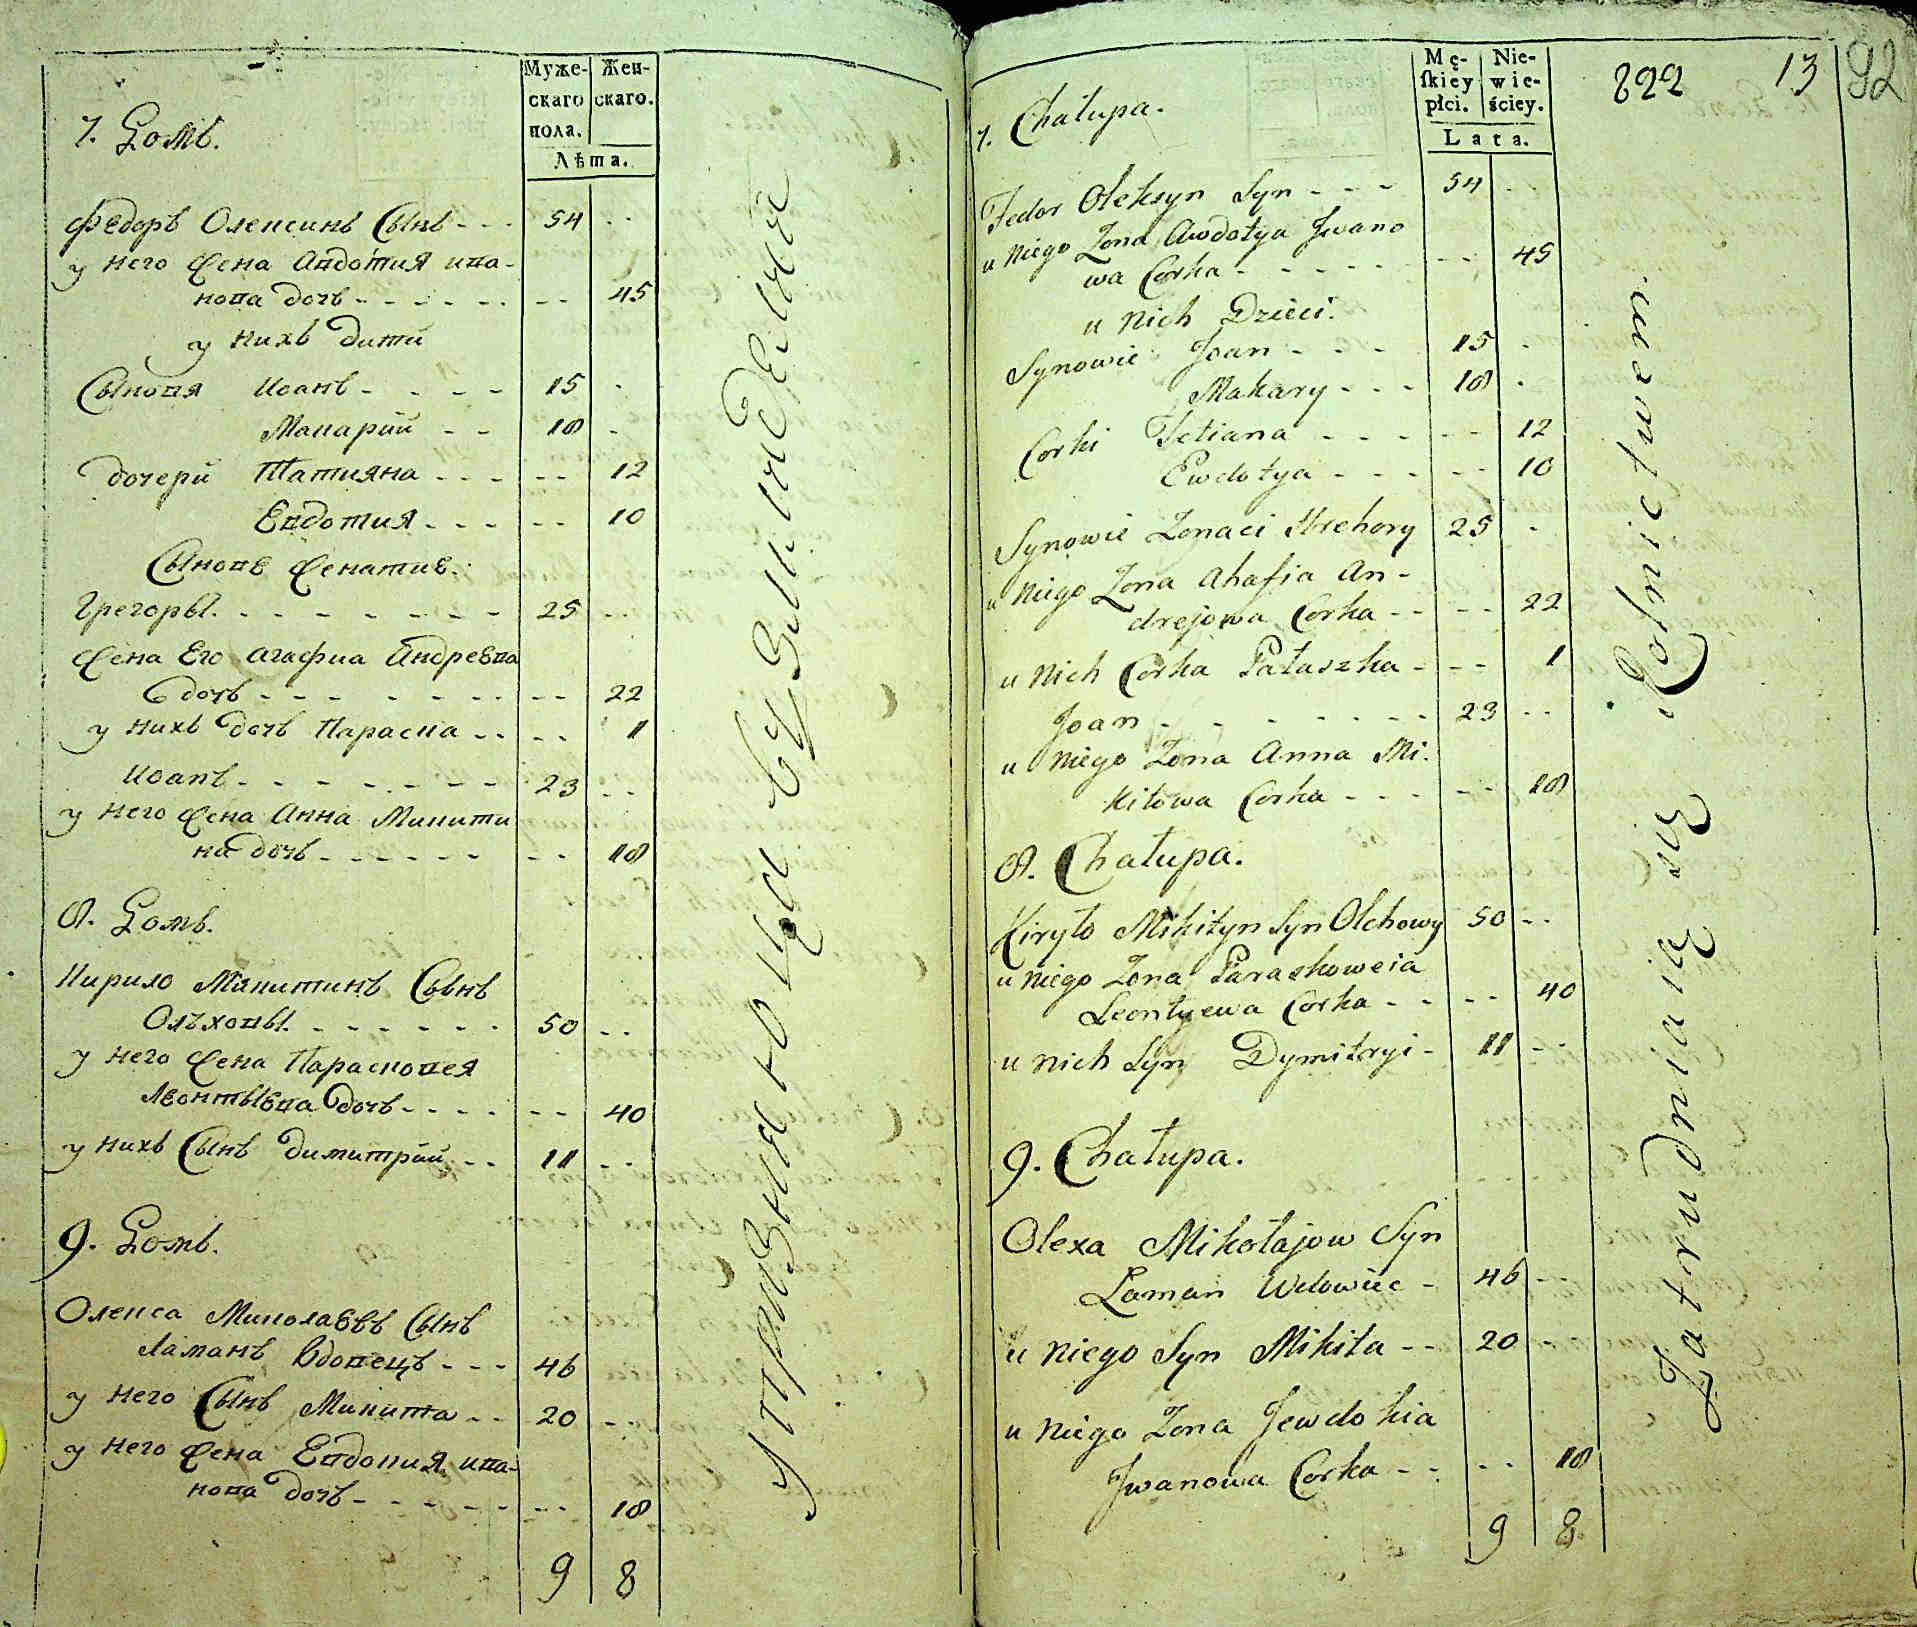 Муже-
скаго
пола.
Жен-
скаго.
Лѣта.
7. Домъ.
Федоръ Олексинъ Сынъ - - - 54 - -
у него Жена Авдотия ива-
нова дочь - - - - - - - - 45
у нихъ дити
Сыновя Иоанъ - - - - 15 -
Макарий - - 18 -
дочери Татияна - - - - - 12
Евдотия - - - - - 10
Сыновѣ женатие.
Грегоры. - - - - - - - - 25 - -
Жена Его агафиа Андреева
дочь - - - - - - - - - 22
у нихъ дочь Параска - - - - 1
Иоанъ - - - - - - - 23 - -
у него Жена Анна Микити
на дочь - - - - - - - - 18
8. Домъ.
Кирило Микитинъ Сынъ
Олъховы. - - - - - - 50 - -
у него Жена Парасковея
Леонтыева дочь - - - - - - 40
у нихъ Сынъ димитрий - - 11 - -
9. Домъ.
Олекса Миколаевъ Сынъ
Ламанъ Вдовецъ - - - 46
у него Сынъ Микита - - 20 -
у него Жена Евдокия ива-
нова дочь - - - - - - - - 18
9 8
упражняются въ земледелия
Mę-
skiey
płci.
Nie-
wie-
ściey.
Lata.
822
13
92
7. Chałupa.
Fedor Oleksyn Syn - - - 54 -
u niego Zona Awdotya Jwano
wa Corka - - - - - - - 45
u nich Dzieci.
Synowie Joan - - - 15 -
Makary - - - 18 -
Corki Tetiana - - - - - 12
Ewdotya - - - - - - 10
Synowie Zonaci Hrehory 25 -
u niego Zona Ahafia An-
drejowa Corka - - - - 22
u nich Corka Pałaszka - - - 1
Joan - - - - - - - 23 - -
u niego Zona Anna Mi-
kitowa Corka - - - - - 18
8. Chałupa.
Kiryło Mikityn Syn Olchowy 50 - -
u niego Zona Paraskoweia
Leontyewa Corka - - - - 40
u nich Syn Dymitryi - 11 - -
9. Chałupa.
Olexa Mikołajow Syn
Laman Wdowiec - 46 - -
u niego Syn Mikita - - 20 -
u niego Zona Jewdokia
Jwanowa Corka - - - - 18
9 8
Zatrudniaią się Rolnictwem.